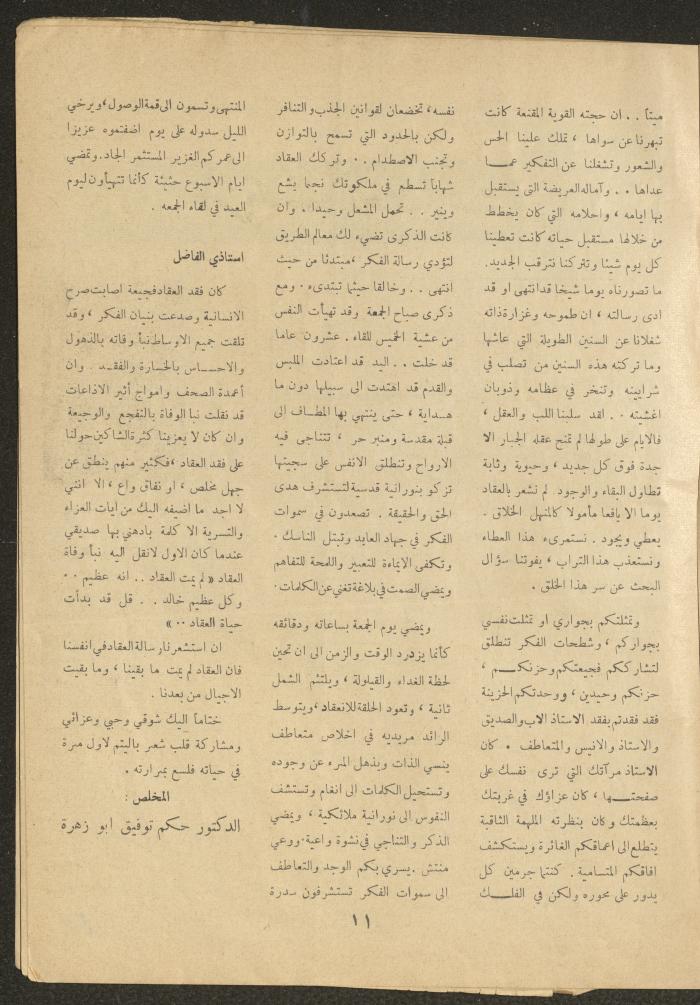 ميتاً . . ان حجته القوية المقنعة كانت
تبهرنا عن سواها ، تملك علينا الحس
والشعور وتشغلنا عن التفكير عما
عداها . . وآماله العريضة التي يستقبل
بها ايامه ، واحلامه التي كان يخطط
من خلالها مستقبل حياته كانت تعطينا
كل يوم شيئا وتتركنا نترقب الجديد.
ما تصورناه يوما شيخا قد انتهى او قد
ادى رسالته ، ان طموحه وغزارة ذاته
شغلانا عن السنين الطويلة التي عاشها
وما تركته هذه السنين من تصلب في
شرايينه وتنخر في عظامه وذوبان
اغشيته . . لقد سلبنا اللب والعقل ،
فالايام على طولها لم تمنح عقله الجبار الا
جدة فوق كل جديد ، وحيوية وثابة
تطاول البقاء والوجود. لم نشعر بالعقاد
يوما الا يافعا مأمولا كالمنهل الخلاق .
يعطي ويجود . نستمرىء هذا العطاء
ونستعذب هذا التراب ، يفوتنا سؤال
البحث عن سر هذا الخلق .
وتمثلتكم بجواري او تمثلت نفسي
بجواركم ، وشطحات الفكر تنطلق
لتشارككم فجيعتكم وحزنكم ،
حزنكم وحيدين ، ووحدتكم الحزينة
فقد فقدتم بفقد الاستاذ الاب والصديق
والاستاذ والانيس والمتعاطف . كان
الاستاذ مرآتك التي ترى نفسك على
صفحتها ، كان عزاؤك في غربتك
بعظمتك وكان بنظرته الملهمة الثاقبة
يتطلع الى اعماقكم الغائرة ويستكشف
افاقكم المتسامية . كنتما جرمين كل
يدور على محوره ولكن في الفلك
نفسه ، تخضعان لقوانين الجذب والتنافر
ولكن بالحدود التي تسمح بالتوازن
وتجنب الاصطدام . . وتركك العقاد
شهاباً تسطع في ملكوتك نجما يشع
وينير . . تحمل المشعل وحيدا . وان
كانت الذكرى تضيء لك معالم الطريق
لتؤدي رسالة الفكر ، مبتدئا من حيث
انتهى . . وخالقا حيثما تبتدىء . ومع
ذكرى صباح الجمعة وقد تهيأت النفس
من عشية الخميس للقاء . عشرون عاما
قد خلت . . اليد قد اعتادت الملبس
والقدم قد اهتدت الى سبيلها دون ما
هداية ، حتى ينتهي بها المطاف الى
قبلة مقدسة ومنبر حر ، تتناجى فيه
الارواح وتنطلق الانفس على سجيتها
تزكو بنورانية قدسية لتستشرف هدى
الحق والحقيقة . تصعدون في سموات
الفكر في جهاد العابد وتبتل الناسك .
وتكفى الايماءة للتعبير واللمحة للتفاهم
ويمضي الصمت في بلاغة تغني عن الكلمات.
ويمضي يوم الجمعة بساعاته ودقائقه
كأنما يزدرد الوقت والزمن الى ان تحين
لحظة الغداء والقيلولة ، ويلتئم الشمل
ثانية ، وتعود الحلقة للانعقاد ، ويتوسط
الرائد مريديه في اخلاص متعاطف
ينسي الذات ويذهل المرء عن وجوده
وتستحيل الكلمات الى انغام وتستشف
النفوس الى نورانية ملائكية ، ويمضي
الذكر والتناجي في نشوة واعية . ووعي
منتش . يسري بكم الوجد والتعاطف
الى سموات الفكر تستشرفون سدرة
المنتهى وتسمون الى قمة الوصول ، ويرخي
الليل سدوله على يوم اضفتموه عزيزا
الى عمركم الغزير المستثمر الجاد. وتمضي
ايام الاسبوع حثيثة كأنما تتهيأون ليوم
العيد في لقاء الجمعه .
استاذي الفاضل
كان فقد العقاد فجيعة اصابت صرح
الانسانية وصدعت بنيان الفكر ، وقد
تلقت جميع الاوساط نبأ وفاته بالذهول
والاحساس بالخسارة والفقد . وان
أعمدة الصحف وامواج أثير الاذاعات
قد نقلت نبا الوفاة بالتفجع والوجيعة
وان كان لا يعزينا كثرة الشاكين حولنا
على فقد العقاد ، فكثير منهم ينطق عن
جهل مخلص ، او نفاق واع ، الا انني
لا اجد ما اضيفه اليك من ايات العزاء
والتسرية الا كلمة بادهني بها صديقي
عندما كان الاول لانقل اليه نبأ وفاة
العقاد « لم يمت العقاد .. انه عظيم . .
وكل عظيم خالد . . قل قد بدأت
حياة العقاد . . »
ان استشعرنا رسالة العقاد في انفسنا
فان العقاد لم يمت ما بقينا ، وما بقيت
الاجيال من بعدنا .
ختاماً اليك شوقي وحبي وعزائي
ومشاركة قلب شعر باليتم لاول مرة
في حياته فلسع بمرارته .
المخلص :
الدكتور حكم توفيق ابو زهرة
١١